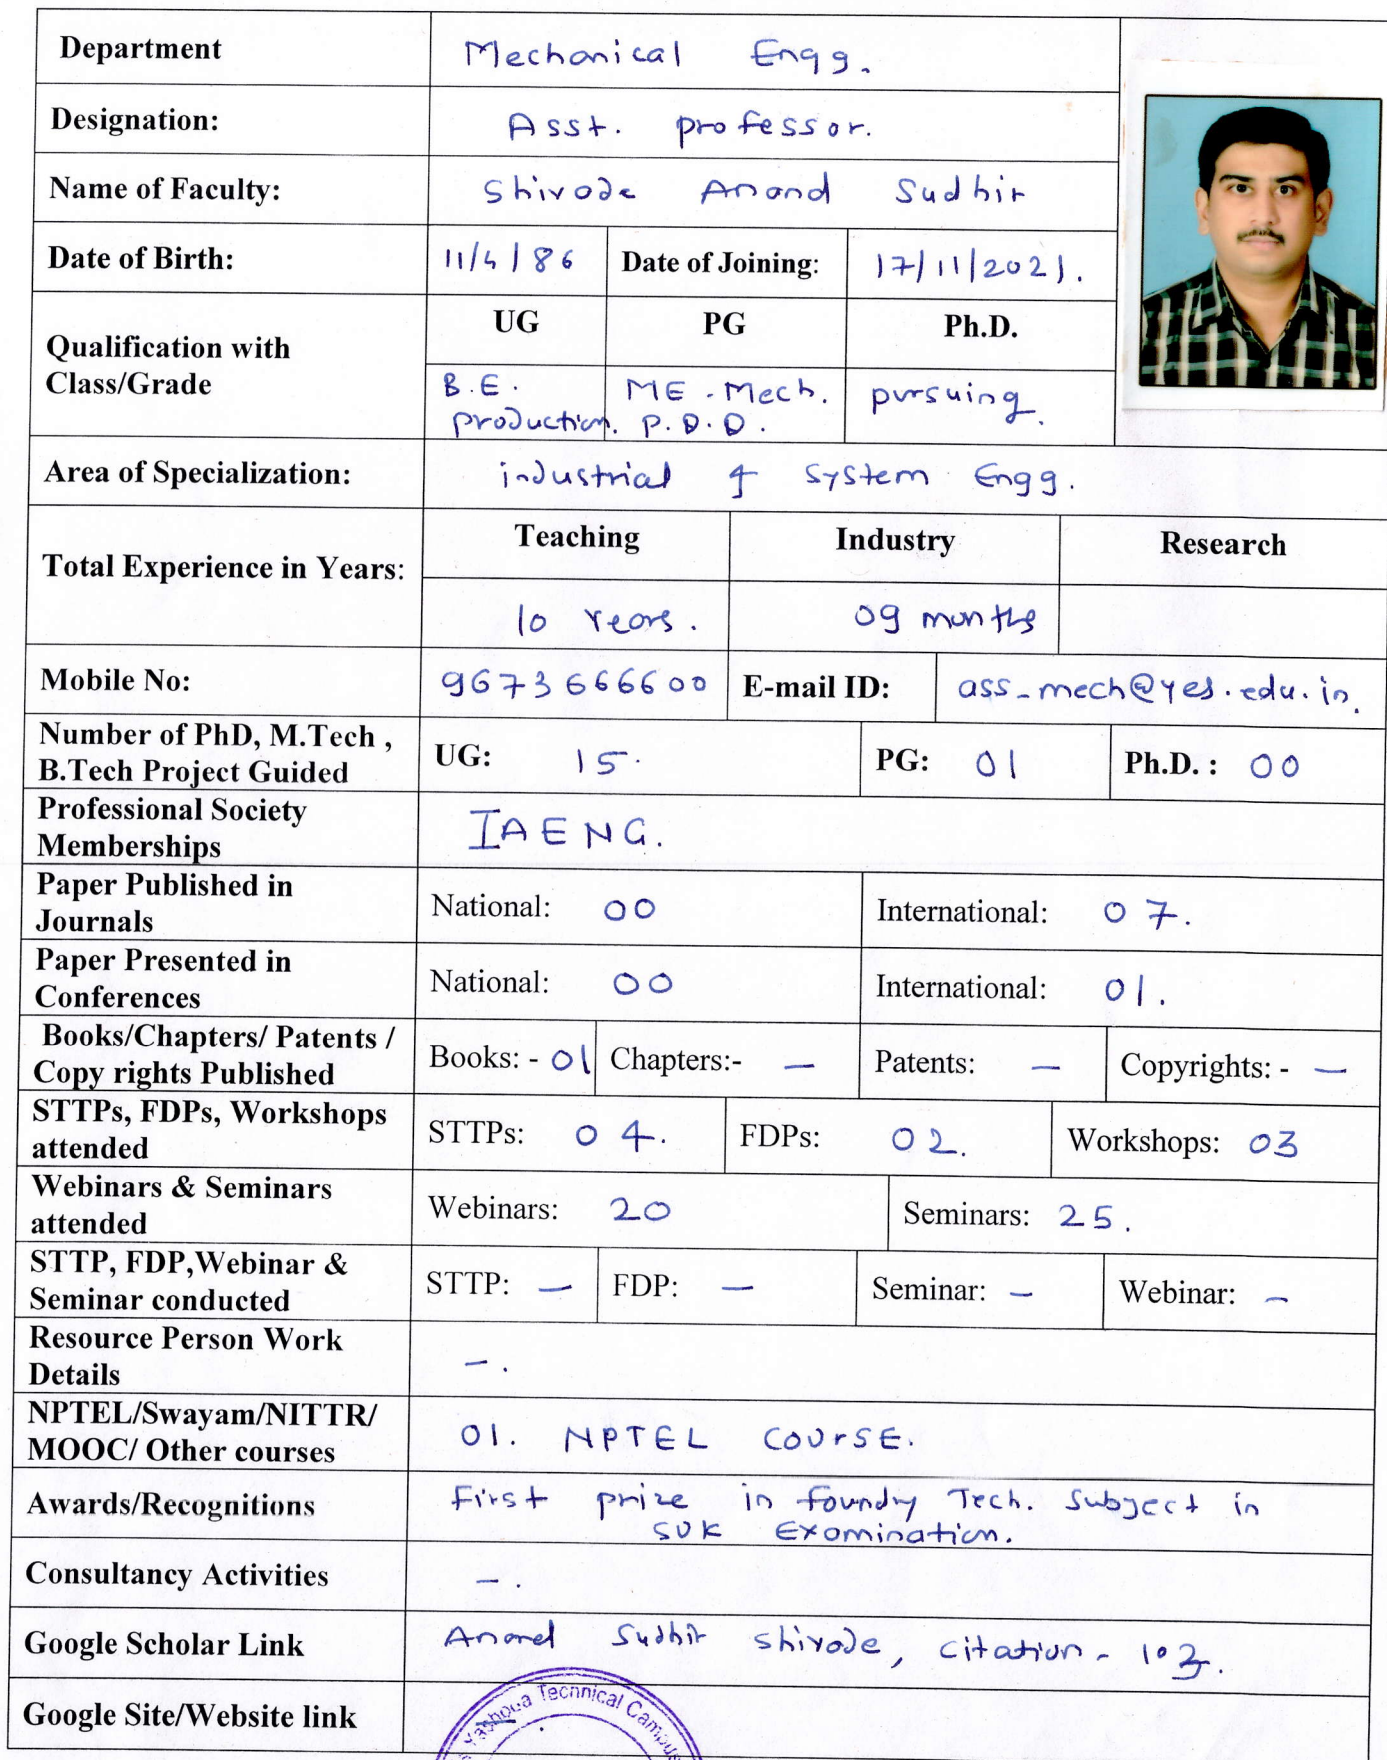 Department Mechanical Engg.
Designation: Asst. professor.
Name of Faculty: Shivode Anand Sudhir
Date of Birth: 11/4/86 Date of Joining: 17/11/2021.
Qualification with Class/Grade
UG PG Ph.D.
B.E. production. ME - Mech. P.D.D. pursuing.
Area of Specialization: industrial & System Engg.
Total Experience in Years:
Teaching Industry Research
10 Years. 09 months
Mobile No: 9673666600 E-mail ID: ass_mech@yes.edu.in.
Number of PhD, M.Tech ,
B.Tech Project Guided
UG: 15. PG: 01 Ph.D. : 00
Professional Society
Memberships
IAENG.
Paper Published in
Journals
National: 00 International: 07.
Paper Presented in
Conferences
National: 00 International: 01.
Books/Chapters/ Patents /
Copy rights Published
Books: - 01 Chapters:- — Patents: — Copyrights: - —
STTPs, FDPs, Workshops
attended
STTPs: 04. FDPs: 02. Workshops: 03
Webinars & Seminars
attended
Webinars: 20 Seminars: 25.
STTP, FDP,Webinar &
Seminar conducted
STTP: — FDP: — Seminar: — Webinar: —
Resource Person Work
Details
—.
NPTEL/Swayam/NITTR/
MOOC/ Other courses
01. NPTEL COURSE.
Awards/Recognitions
First prize in foundry Tech. Subject in
SUK Examination.
Consultancy Activities —.
Google Scholar Link Anand Sudhir Shivode, citation - 103.
Google Site/Website link —.
Technical Campus